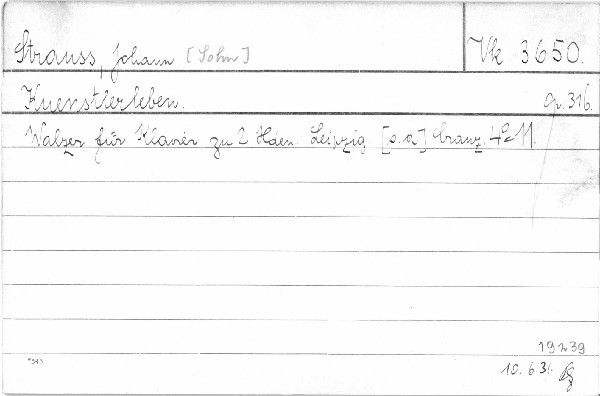 Strauss, Johann [Sohn] Vk 3650.
Kuenstlerleben. Op. 316.
Walzer für Klavier zu 2 Hden. Leipzig [s.a.] Cranz. 4° 11.
19239
10. 6 31.